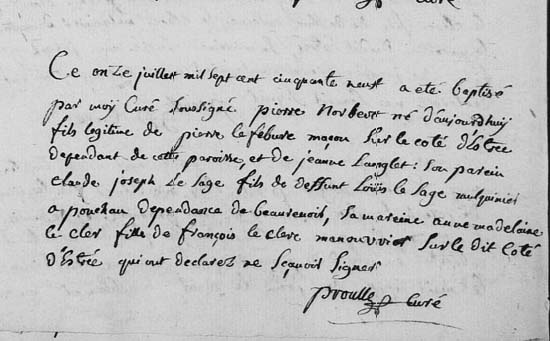 Curé
Ce onze juillest mil sept cent cinquante neuf a eté baptisé
par moy Curé soussigné pierre Norbert né d'aujourd'huy
fils legitime de pierre le febure maçon sur le coté d'Estrée
dependant de cette paroisse et de jeanne Langlet : son parein
claude joseph Le Sage fils de deffunt Loüis le Sage mulquinier
a ponchau dependance de beaurevoir, sa mareine anne madelaine
le cler fille de françois le clerc manouvrier sur le dit coté
d'Estrée qui ont declarez ne sçavoir signer
proulle Curé